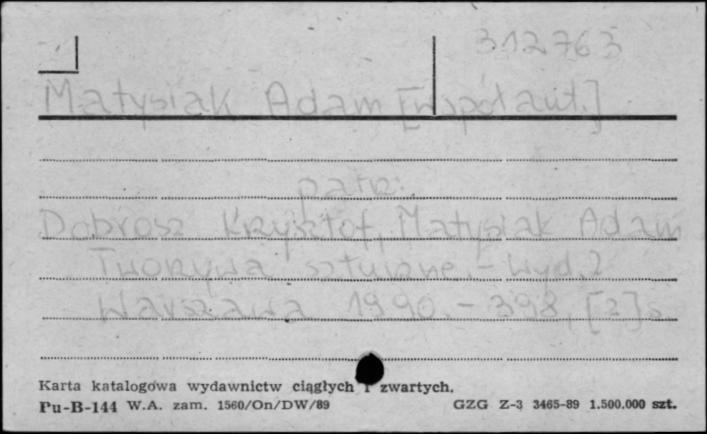 312763
Matysiak Adam [współaut.]
patrz:
Dobrosz Krzysztof, Matysiak Adam
Tworzywa sztuczne. - Wyd. 2
Warszawa 1990. - 398, [2] s.
Karta katalogowa wydawnictw ciągłych i zwartych.
Pu-B-144 W.A. zam. 1560/On/DW/89 GZG Z-3 3465-89 1.500.000 szt.